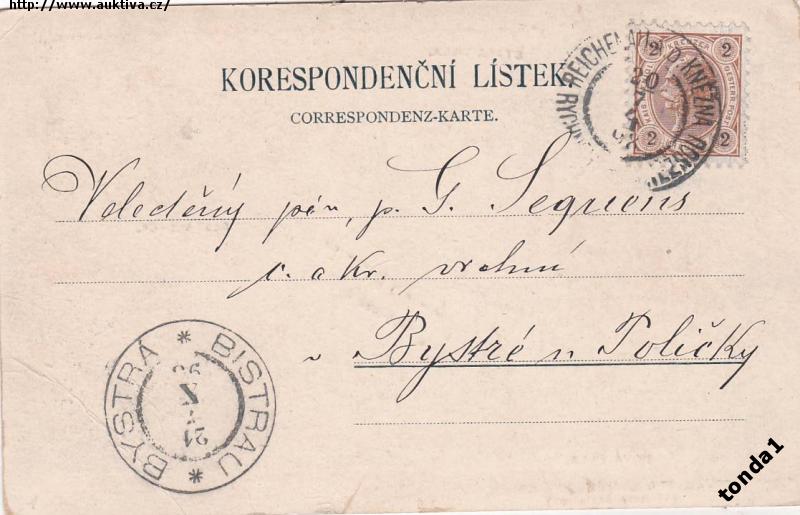 http://www.auktiva.cz/
KORESPONDENČNÍ LÍSTEK
CORRESPONDENZ-KARTE.
2 2
2 2
REICHENAU
KNĚŽNA
20
Velectěný pán, p. G. Sequens
c. a kr. vrchní
v Bystré u Poličky
BYSTRÁ * BISTRAU *
21
tonda1